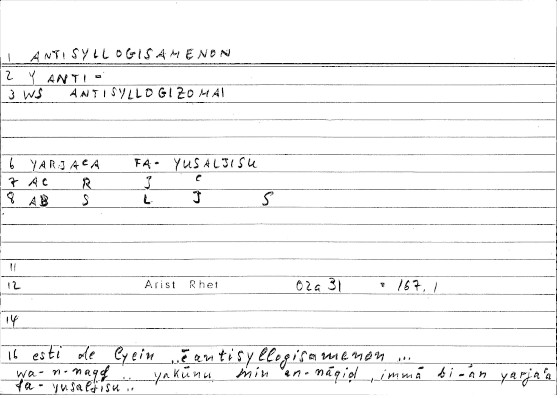 1 ANTISYLLOGISAMENON
2 Y ANTI =
3 WS ANTISYLLOGIZOMAI
6 YARJAcA FA- YUSALJISU
7 AC R J c
8 AB S L J S
11
12 Arist Rhet 02a 31 = 167,1
14
16 esti de lyein ..ē antisyllogisamenon ...
wa-n-naqḍ .. yakūnu min an-nāqiḍ, immā bi-ān yarjaʿa
fa-yusaljisu ..